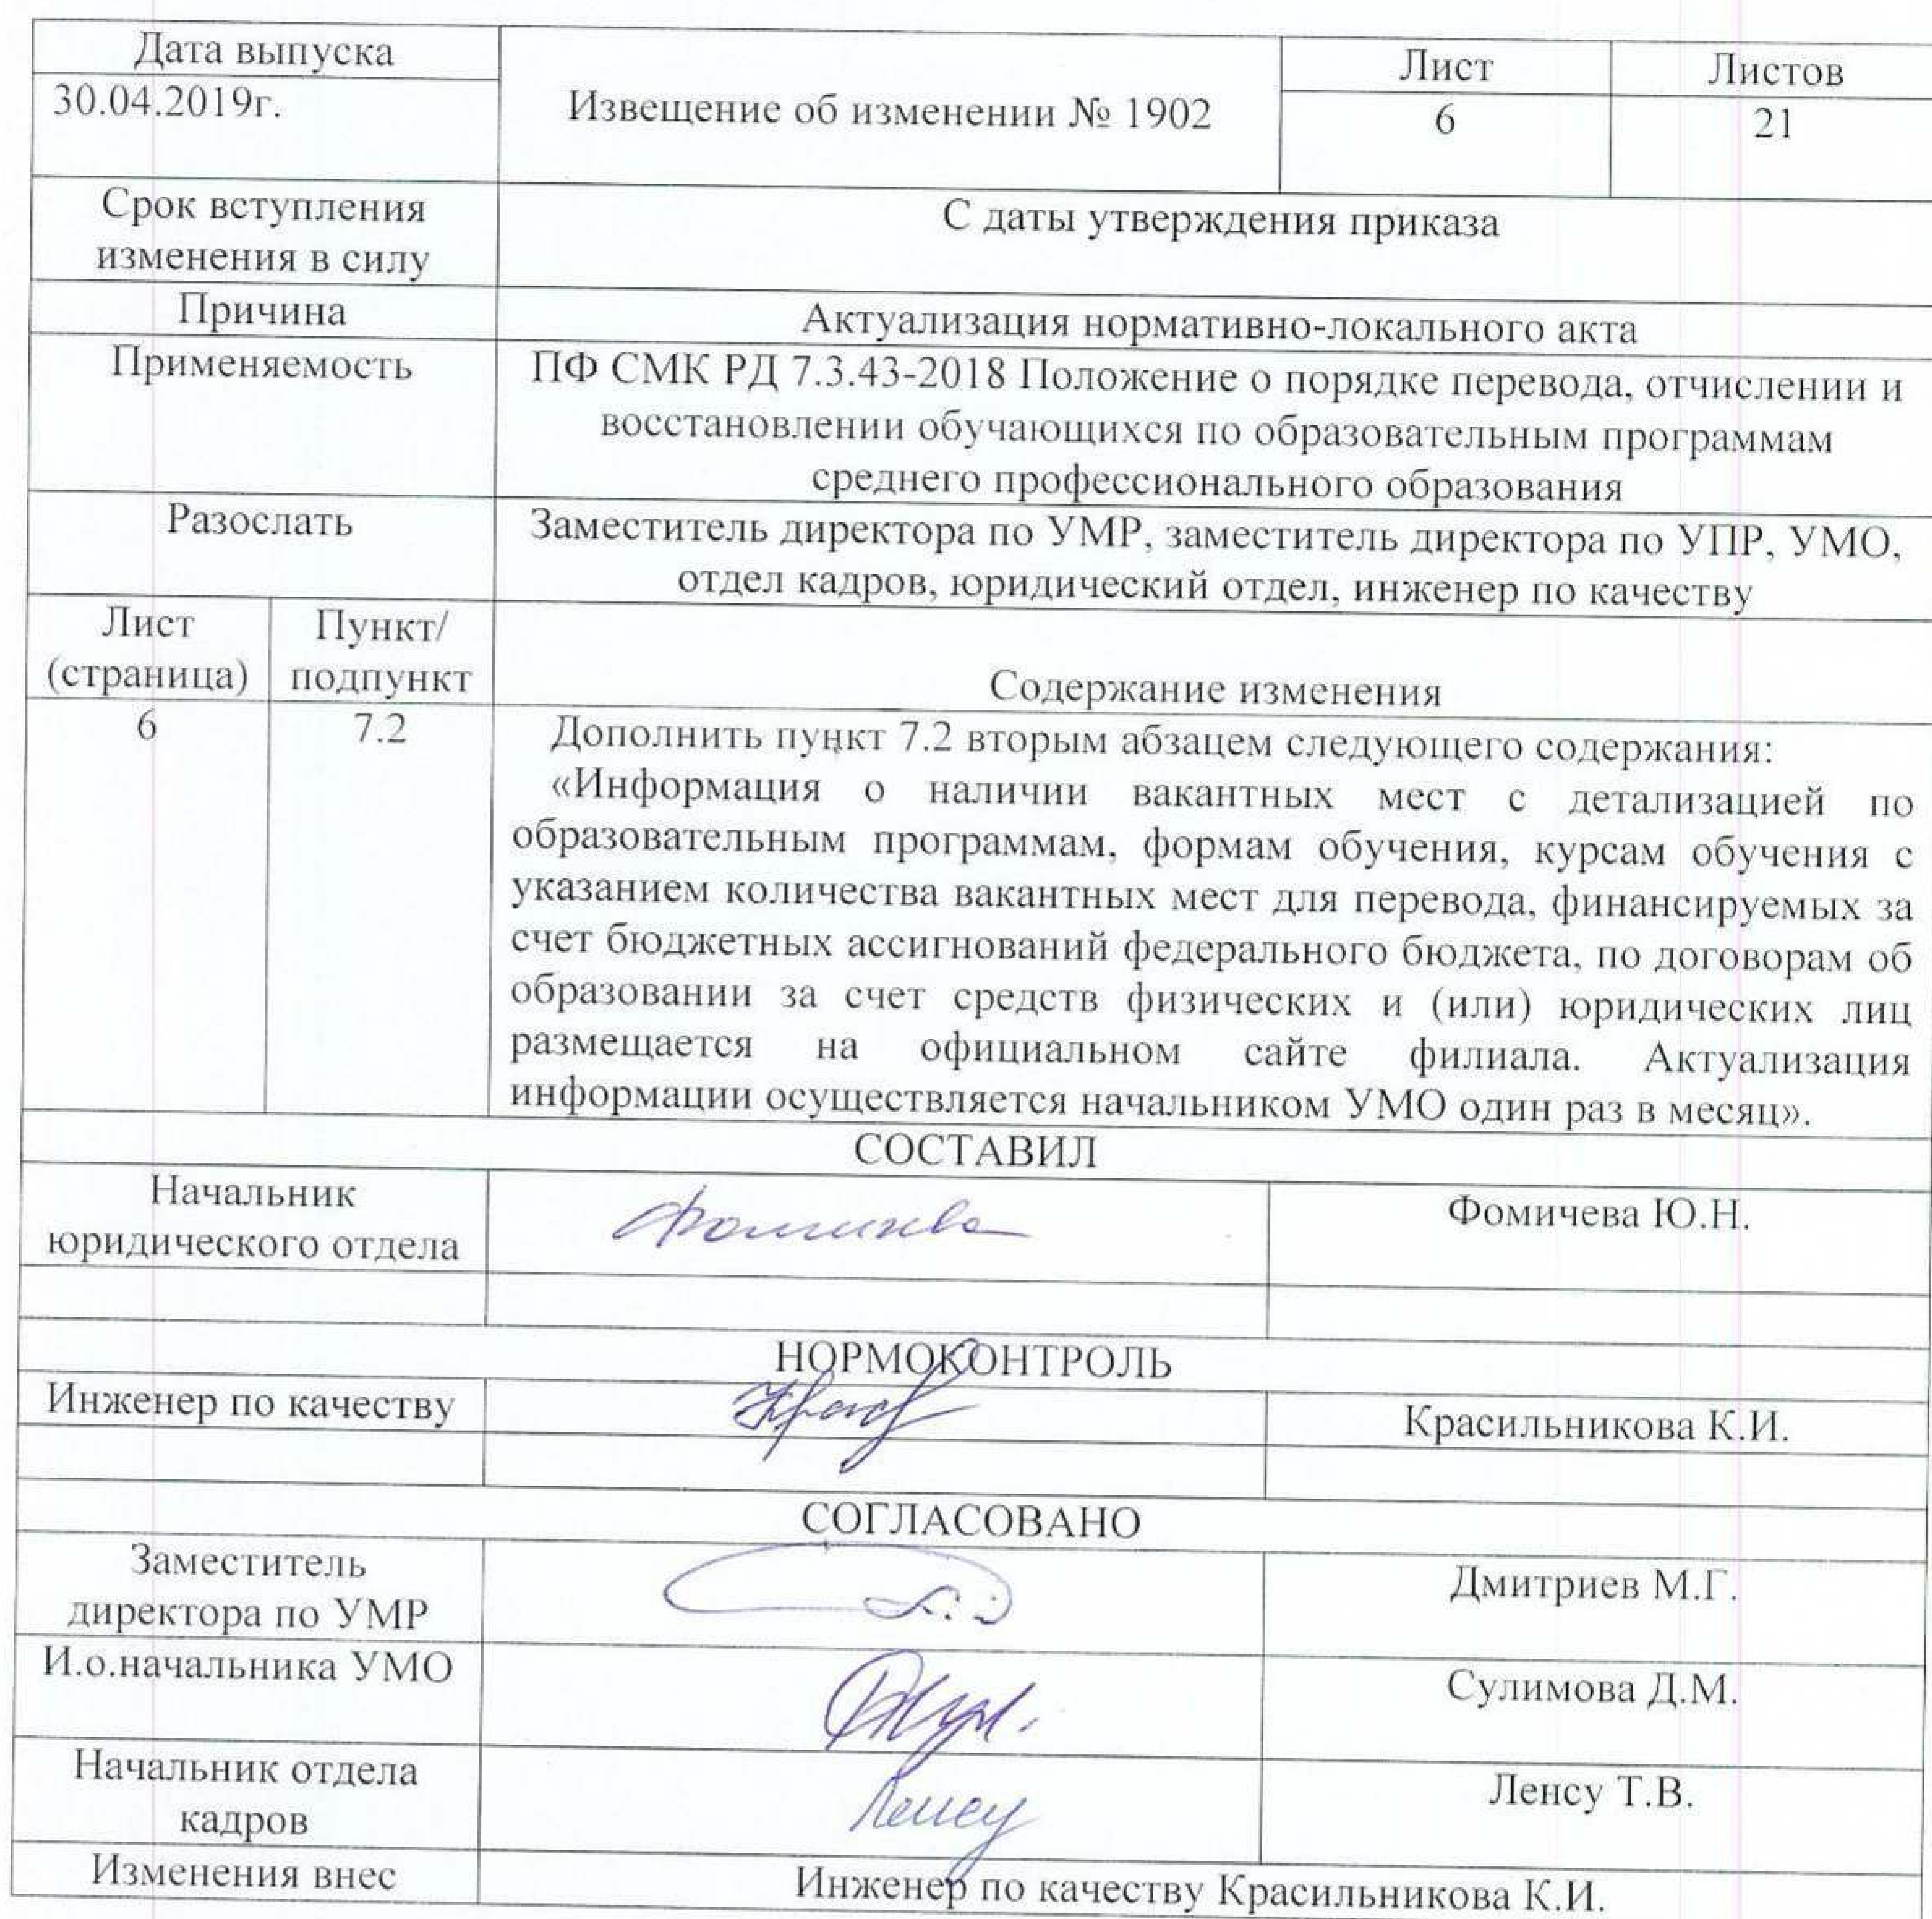 Дата выпуска
30.04.2019г.
Извещение об изменении № 1902
Лист
Листов
6
21
Срок вступления
изменения в силу
С даты утверждения приказа
Причина
Актуализация нормативно-локального акта
Применяемость
ПФ СМК РД 7.3.43-2018 Положение о порядке перевода, отчислении и
восстановлении обучающихся по образовательным программам
среднего профессионального образования
Разослать
Заместитель директора по УМР, заместитель директора по УПР, УМО,
отдел кадров, юридический отдел, инженер по качеству
Лист
(страница)
Пункт/
подпункт
Содержание изменения
6
7.2
Дополнить пункт 7.2 вторым абзацем следующего содержания:
«Информация о наличии вакантных мест с детализацией по
образовательным программам, формам обучения, курсам обучения с
указанием количества вакантных мест для перевода, финансируемых за
счет бюджетных ассигнований федерального бюджета, по договорам об
образовании за счет средств физических и (или) юридических лиц
размещается на официальном сайте филиала. Актуализация
информации осуществляется начальником УМО один раз в месяц».
СОСТАВИЛ
Начальник
юридического отдела
Фомичева Ю.Н.
НОРМОКОНТРОЛЬ
Инженер по качеству
Красильникова К.И.
СОГЛАСОВАНО
Заместитель
директора по УМР
Дмитриев М.Г.
И.о.начальника УМО
Сулимова Д.М.
Начальник отдела
кадров
Ленсу
Ленсу Т.В.
Изменения внес
Инженер по качеству Красильникова К.И.